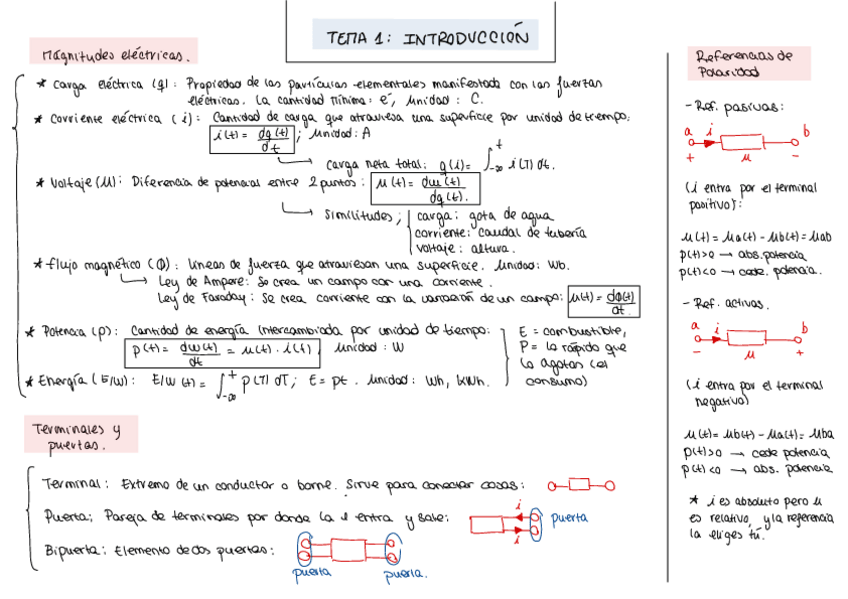 TEMA 1: INTRODUCCIÓN
Magnitudes eléctricas.
* Carga eléctrica (q): Propiedad de las partículas elementales manifestada con las fuerzas
eléctricas. La cantidad mínima: e⁻, unidad: C.
* Corriente eléctrica (i): Cantidad de carga que atraviesa una superficie por unidad de tiempo:
i(t) = dq(t)/dt ; unidad: A
carga neta total: q(i) = ∫_{-∞}^{t} i(T) dt.
* Voltaje (u): Diferencia de potencial entre 2 puntos: u(t) = dw(t)/dq(t).
similitudes; carga: gota de agua
corriente: caudal de tubería
voltaje: altura.
* flujo magnético (ϕ): líneas de fuerza que atraviesan una superficie. Unidad: Wb.
Ley de Ampere: Se crea un campo con una corriente.
Ley de Faraday: Se crea corriente con la variación de un campo: u(t) = dϕ(t)/dt.
* Potencia (p): Cantidad de energía intercambiada por unidad de tiempo:
p(t) = dw(t)/dt = u(t) · i(t) unidad: W
E = combustible,
P = lo rápido que
lo agotas (el
consumo)
* Energía (E/w): E/w(t) = ∫_{-∞}^{t} p(T) dT; E = pt. Unidad: Wh, kWh.
Terminales y
puertas.
Terminal: Extremo de un conductor o borne. Sirve para conectar cosas:
Puerta; Pareja de terminales por donde la i entra y sale:
i
i
puerta
Bipuerta: Elemento de dos puertas:
puerta
puerta.
Referencias de
Polaridad
- Ref. pasivas:
a i b
+ u -
(i entra por el terminal
positivo):
u(t) = ua(t) - ub(t) = uab
p(t)>0 → abs. potencia
p(t)<0 → cede. potencia.
- Ref. activas.
a i b
- u +
(i entra por el terminal
negativo)
u(t) = ub(t) - ua(t) = uba
p(t)>0 → cede potencia
p(t)<0 → abs. potencia
* i es absoluto pero u
es relativo, y la referencia
la eliges tú.